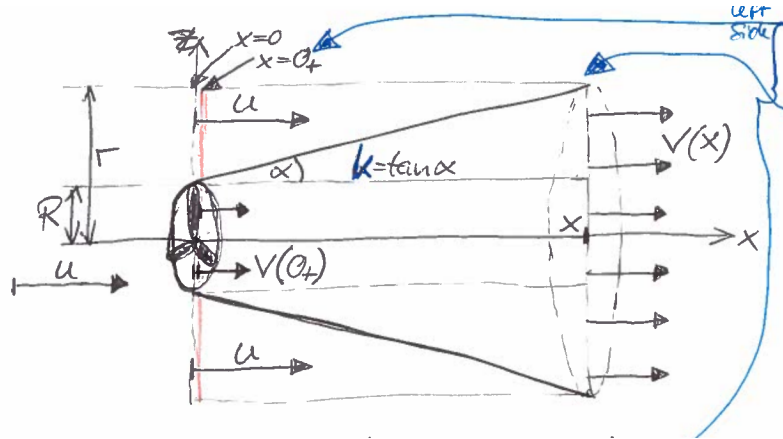 left
side
z
x=0
x=0+
u
r
α
k=tanα
V(x)
R
x
x
V(0+)
u
u